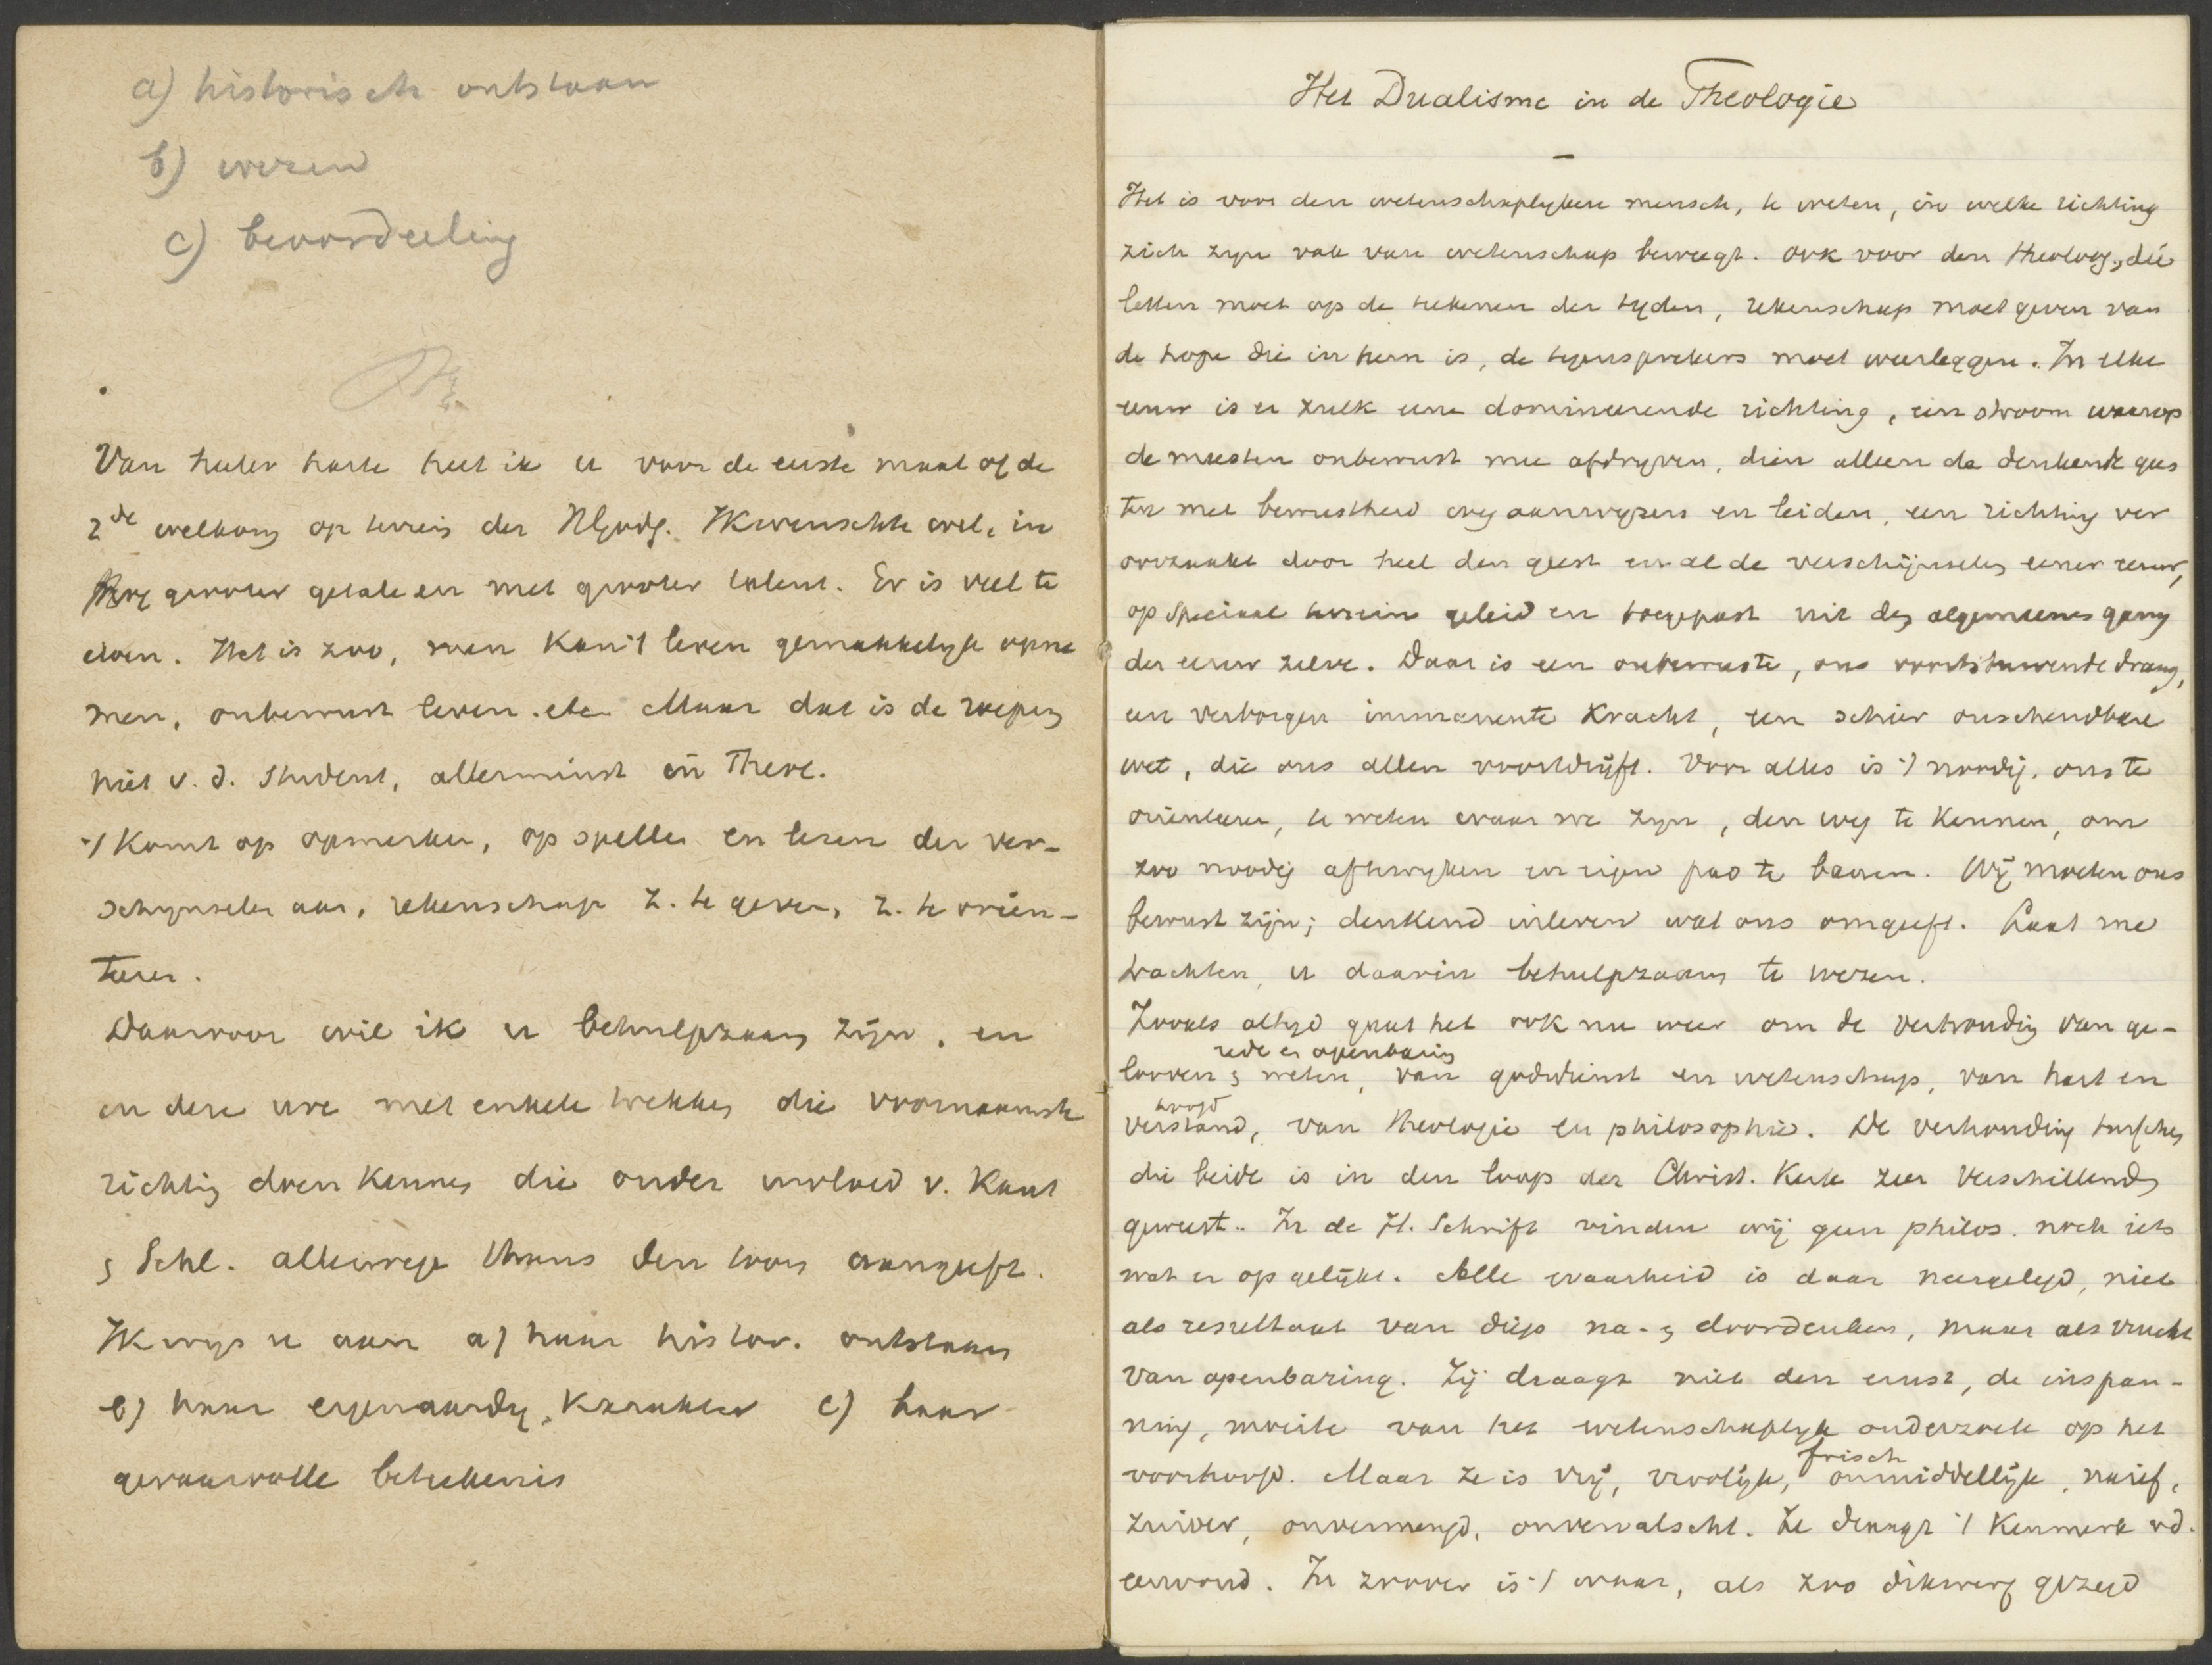 a) historisch ontstaan
b) wezen
c) beoordeeling
Van heeler harte heet ik u voor de eerste maal op de
2de welkom op terrein der Ikwenschte wel, in
grooter getale en met grooter talent. Er is veel te
doen. Het is zoo, men kan 't leven gemakkelijk opne
men, onbewust leven. etc. Maar dat is de roeping
niet v. d. student, allerminst in Theol.
't Komt op opmerken, op spellen en lezen der ver-
schijnselen aan, rekenschap z. te geven, z. te oriën-
teeren.
Daarvoor wil ik u behulpzaam zijn, en
in deze ure met enkele trekken die voornaamste
richting doen kennen die onder invloed v. Kant
& Schl. allerwege thans den toon aangeeft.
Ik wijs u aan a) haar histor. ontstaan
b) haar eigenaardig karakter c) haar
gevaarvolle beteekenis
Het Dualisme in de Theologie
Het is voor den wetenschaplijken mensch, te weten, in welke richting
zich zijn vak van wetenschap beweegt. Ook voor den theoloog, die
letten moet op de teekenen der tijden, rekenschap moet geven van
de hope die in hem is, de tegensprekers moet weerleggen. In elke
eeuw is er zulk eene domineerende richting, een stroom waarop
de meesten onbewust mee afdrijven, dien alleen de denkende gees
ten met bewustheid aanwijzen en leiden, een richting ver
oorzaakt door heel den geest en al de verschijnselen eener eeuw,
op speciaal terrein geleid en toegepast uit den algemeenen gang
der eeuw zelve. Daar is een onbewuste, ons voortstuwende drang,
een verborgen immanente kracht, een schier onschendbare
wet, die ons allen voortdrijft. Voor alles is 't noodig, ons te
oriënteeren, te weten waar we zijn, den weg te kennen, om
zoo noodig aftewijken en eigen pad te banen. Wij moeten ons
bewust zijn; denkend inleven wat ons omgeeft. Laat me
trachten, u daarin behulpzaam te wezen.
Zooals altijd gaat het ook nu weer om de verhouding van ge-
rede en openbaring
looven & weten, van godsdienst en wetenschap, van hart en
hoofd
verstand, van theologie en philosophie. De verhouding tusschen
die beide is in den loop der Christ. Kerk zeer verschillend
geweest. In de H. Schrift vinden wij geen philos. noch iets
wat er op gelijkt. Alle waarheid is daar neergelegd, niet
als resultaat van diep na- & doordenken, maar als vrucht
van openbaring. Zij draagt niet den ernst, de inspan-
ning, moeite van het wetenschaplijk onderzoek op het
voorhoofd. Maar ze is vrij, vroolijk, onmiddellijk, naief,
frisch
zuiver, onvermengd, onvervalscht. Ze draagt 't kenmerk vd.
eenvoud. In zooverre is 't waar, als zoo dikwerf gezegd